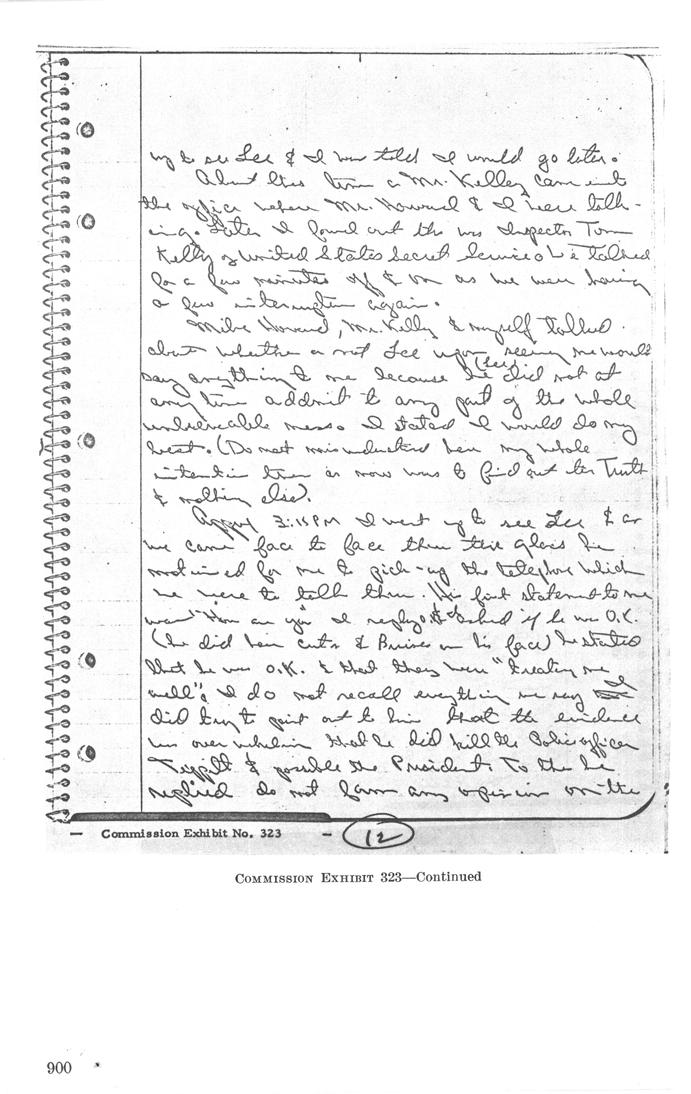 up to see Lee & I was told I would go later.
About this time a Mr. Kelley came into
the office where Mr. Howard & I were talk-
ing. Later I found out this was Inspector Tom
Kelly of United States Secret Service. We talked
for a few minutes off & on as we were having
a few interruption again.
Mike Howard, Mr. Kelly & myself talked
about whether or not Lee upon seeing me would
say anything to me because he (Lee) did not at
any time addmit to any part of the whole
unbelievable mess. I stated I would do my
best. (Do not misunderstand here my whole
intention then as now was to find out the Truth
& nothing else).
Approx 3:15 PM I went up to see Lee & as
we came face to face thru the glass he
motioned for me to pick-up the telephone which
we were to talk thru. His first statement to me
was "How are you" I reply & asked if he was O.K.
(he did have cuts & Bruises on his face) he stated
that he was O.K. & that they were "treating me
well". I do not recall everything we say I
did try to point out to him that the evidence
was over whelm that he did kill the Police officer
Tippit & possible the President. To this he
replied do not form any opinion on the
— Commission Exhibit No. 323 — 12
COMMISSION EXHIBIT 323—Continued
900